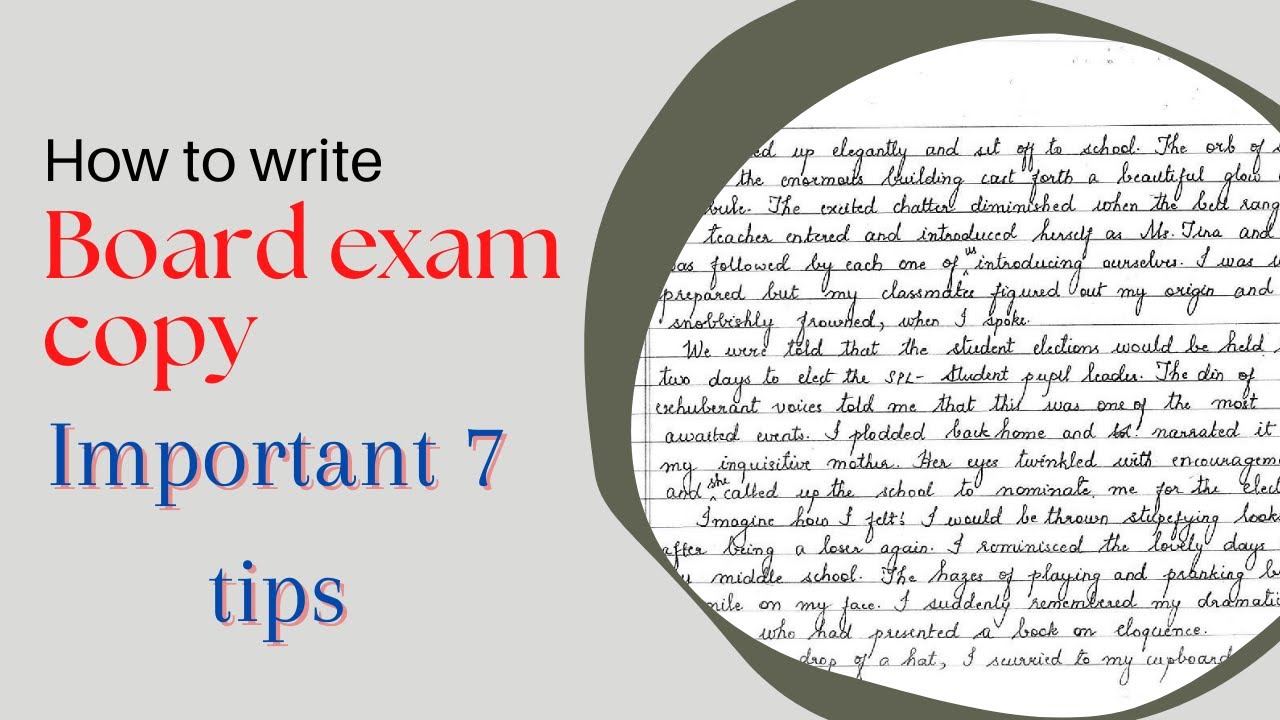 How to write
Board exam
copy
Important 7
tips
up elegantly and set off to school. The orb of
the enormous building cast forth a beautiful glow
The excited chatter diminished when the bell rang
teacher entered and introduced herself as Ms. Tina and
was followed by each one of us introducing ourselves. I was
prepared but my classmates figured out my origin and
snobbishly frowned, when I spoke.
We were told that the student elections would be held
two days to elect the SPL- Student pupil leader. The din of
exhuberant voices told me that this was one of the most
awaited events. I plodded back home and narrated it
my inquisitive mother. Her eyes twinkled with
and she called up the school to nominate me for the
Imagine how I felt! I would be thrown stupefying
after being a loser again. I reminisced the lovely days
middle school. The hazes of playing and pranking
on my face. I suddenly remembered my
who had presented a book on eloquence.
drop of a hat, I scurried to my cupboard